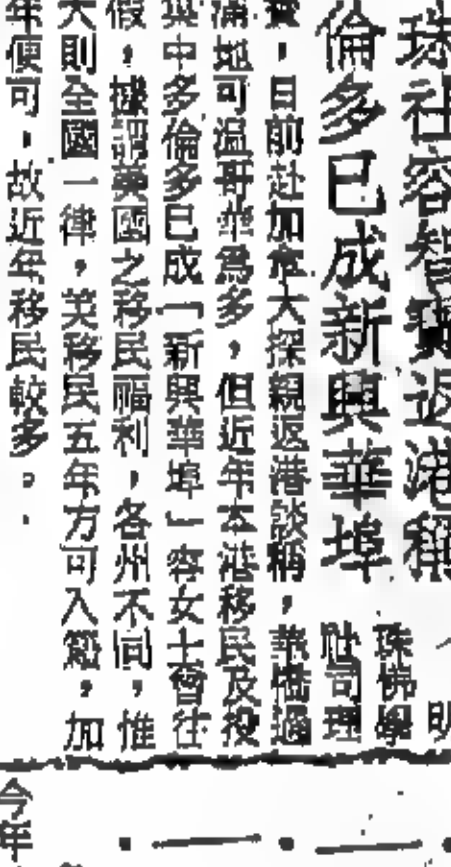 珠社容智寶返港稱
倫多已成新興華埠
明
珠佛學
社司理
寶，日前赴加拿大探親返港談稱，華僑過
滿地可温哥華為多，但近年本港移民及投
與中多倫多已成「新興華埠」容女士曾往
假，據謂美國之移民福利，各州不同，惟
大則全國一律，美移民五年方可入籍，加
年便可，故近年移民較多。
今年